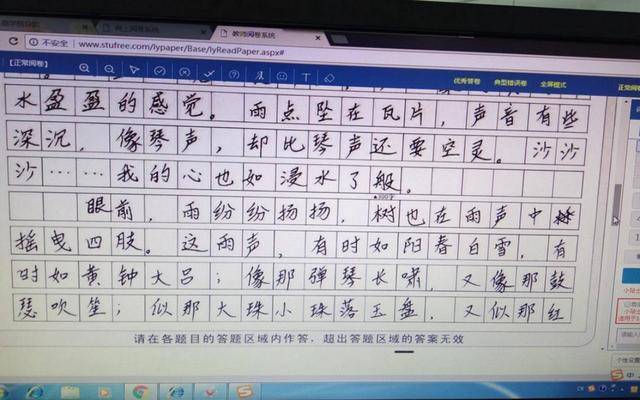 网上阅卷系统
教师阅卷系统
不安全 www.stufree.com/lypaper/Base/lyReadPaper.aspx#
【正常阅卷】
优秀答卷 典型错误卷 全屏模式
正常阅卷
水盈盈的感觉。雨点坠在瓦片，声音有些
深沉，像琴声，却比琴声还要空灵。沙沙
沙……我的心也如浸水了般。
眼前，雨纷纷扬扬，树也在雨声中
摇曳四肢。这雨声，有时如阳春白雪，有
时如黄钟大吕；像那弹琴长啸，又像那鼓
瑟吹笙；似那大珠小珠落玉盘，又似那红
请在各题目的答题区域内作答，超出答题区域的答案无效